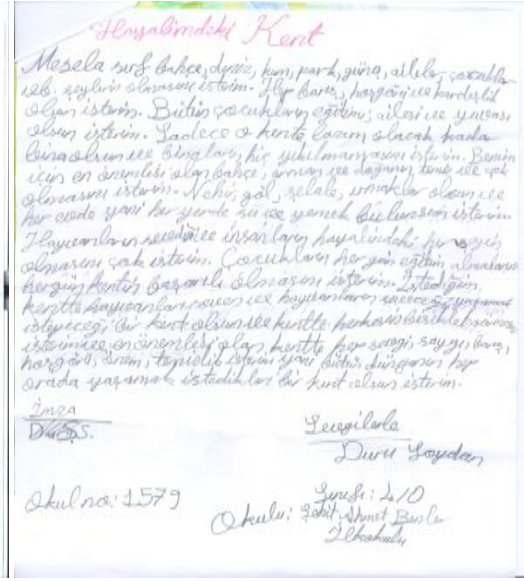 Hayalimdeki Kent
Mesela sırf bahçe, deniz, kum, park, güneş, aileler, çocuklar
vb. şeylerin olmasını isterim. Hep barış, hoşgörü ve kardeşlik
olsun isterim. Bütün çocukların eğitimi, ailesi ve yuvası
olsun isterim. Sadece o kente lazım olacak kadar
bina olsun ve binaların hiç yıkılmamasını isterim. Benim
için en önemlisi olan bahçe, orman ve doğanın temiz ve çok
olmasını isterim. Nehir, göl, şelale, ırmaklar olsun ve
her evde yani her yerde su ve yemek bulunsun isterim.
Hayvanların sevdiği ve insanların hayalindeki her şeyin
olmasını çok isterim. Çocukların hergün eğitim almalarını
hergün kentin başarılı olmasını isterim. İstediğim
kentte hayvanları seven ve hayvanların seveceği, yaşamak
isteyeceği bir kent olsun ve kentte herkesin bisiklet
isterim ve en önemlisi olan kentte hep sevgi, saygı, barış,
hoşgörü, önem, isterim yani bütün dünyanın hep
orada yaşamak istedikleri bir kent olsun isterim.
İmza
Duru S.
Sevgilerle
Duru Soydan
Okul no: 1579
Sınıfı: 4/D
Okulu: Şehit Ahmet
İlkokulu